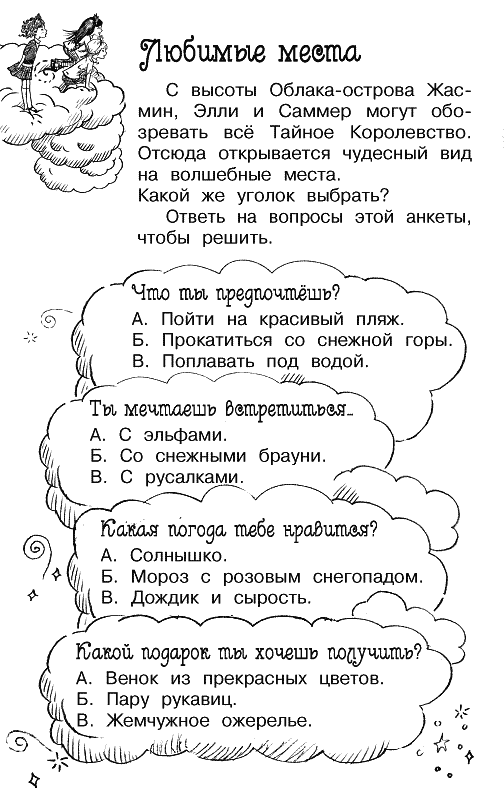 Любимые места
С высоты Облака-острова Жас-
мин, Элли и Саммер могут обо-
зревать всё Тайное Королевство.
Отсюда открывается чудесный вид
на волшебные места.
Какой же уголок выбрать?
Ответь на вопросы этой анкеты,
чтобы решить.
Что ты предпочтёшь?
А. Пойти на красивый пляж.
Б. Прокатиться со снежной горы.
В. Поплавать под водой.
Ты мечтаешь встретиться...
А. С эльфами.
Б. Со снежными брауни.
В. С русалками.
Какая погода тебе нравится?
А. Солнышко.
Б. Мороз с розовым снегопадом.
В. Дождик и сырость.
Какой подарок ты хочешь получить?
А. Венок из прекрасных цветов.
Б. Пару рукавиц.
В. Жемчужное ожерелье.